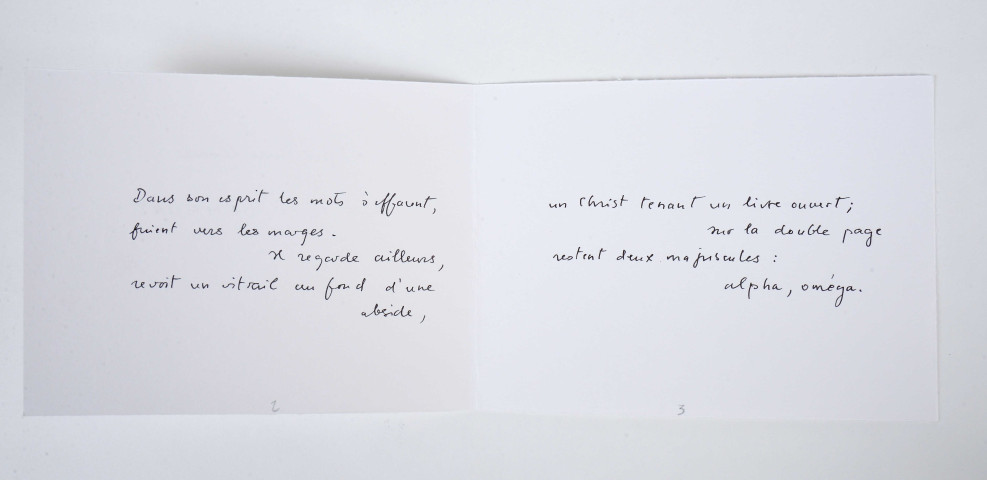 Dans son esprit les mots s'effacent,
fuient vers les marges.
Il regarde ailleurs,
revoit un vitrail au fond d'une
abside,
2
un Christ tenant un livre ouvert ;
sur la double page
restent deux majuscules :
alpha, oméga.
3